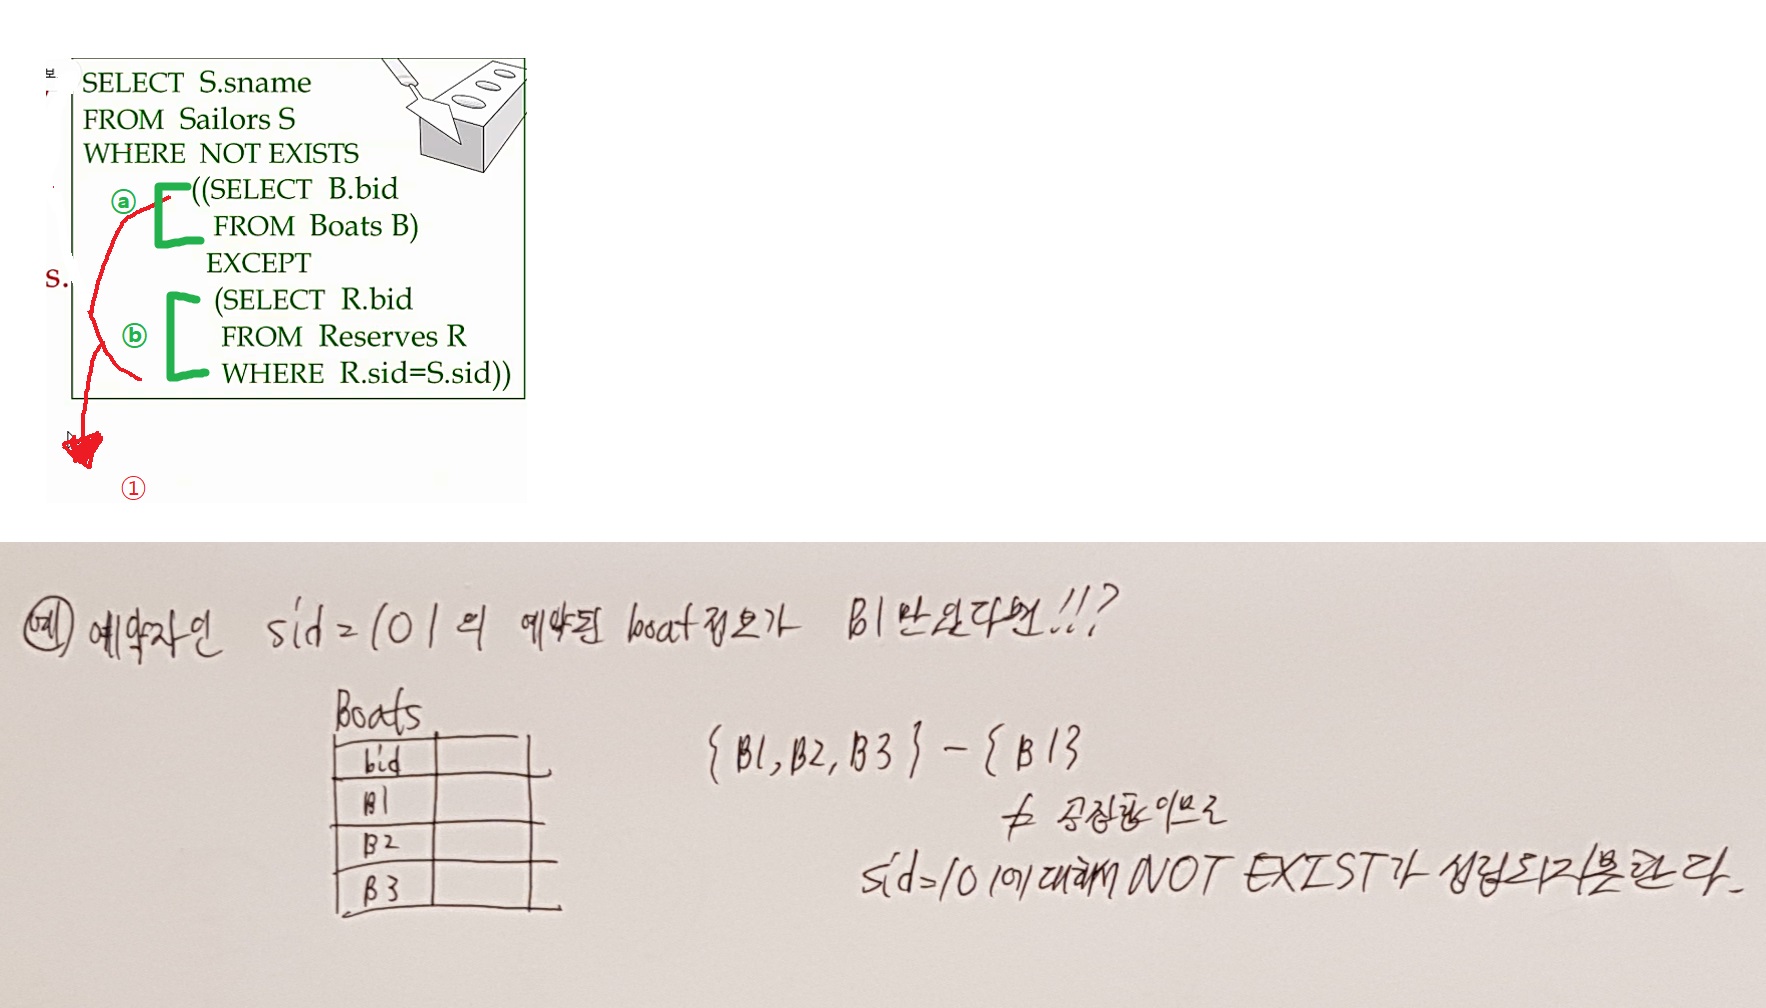 보
SELECT S.sname
FROM Sailors S
WHERE NOT EXISTS
ⓐ ((SELECT B.bid
FROM Boats B)
EXCEPT
s.
(SELECT R.bid
ⓑ FROM Reserves R
WHERE R.sid=S.sid))
①
예) 예약자인 sid=101의 예약된 boat정보가 B1만 있다면!!?
Boats
bid
B1
B2
B3
{B1, B2, B3} - {B1}
≠ 공집합이므로
sid=101에 대해 NOT EXIST가 성립되지 못한다.